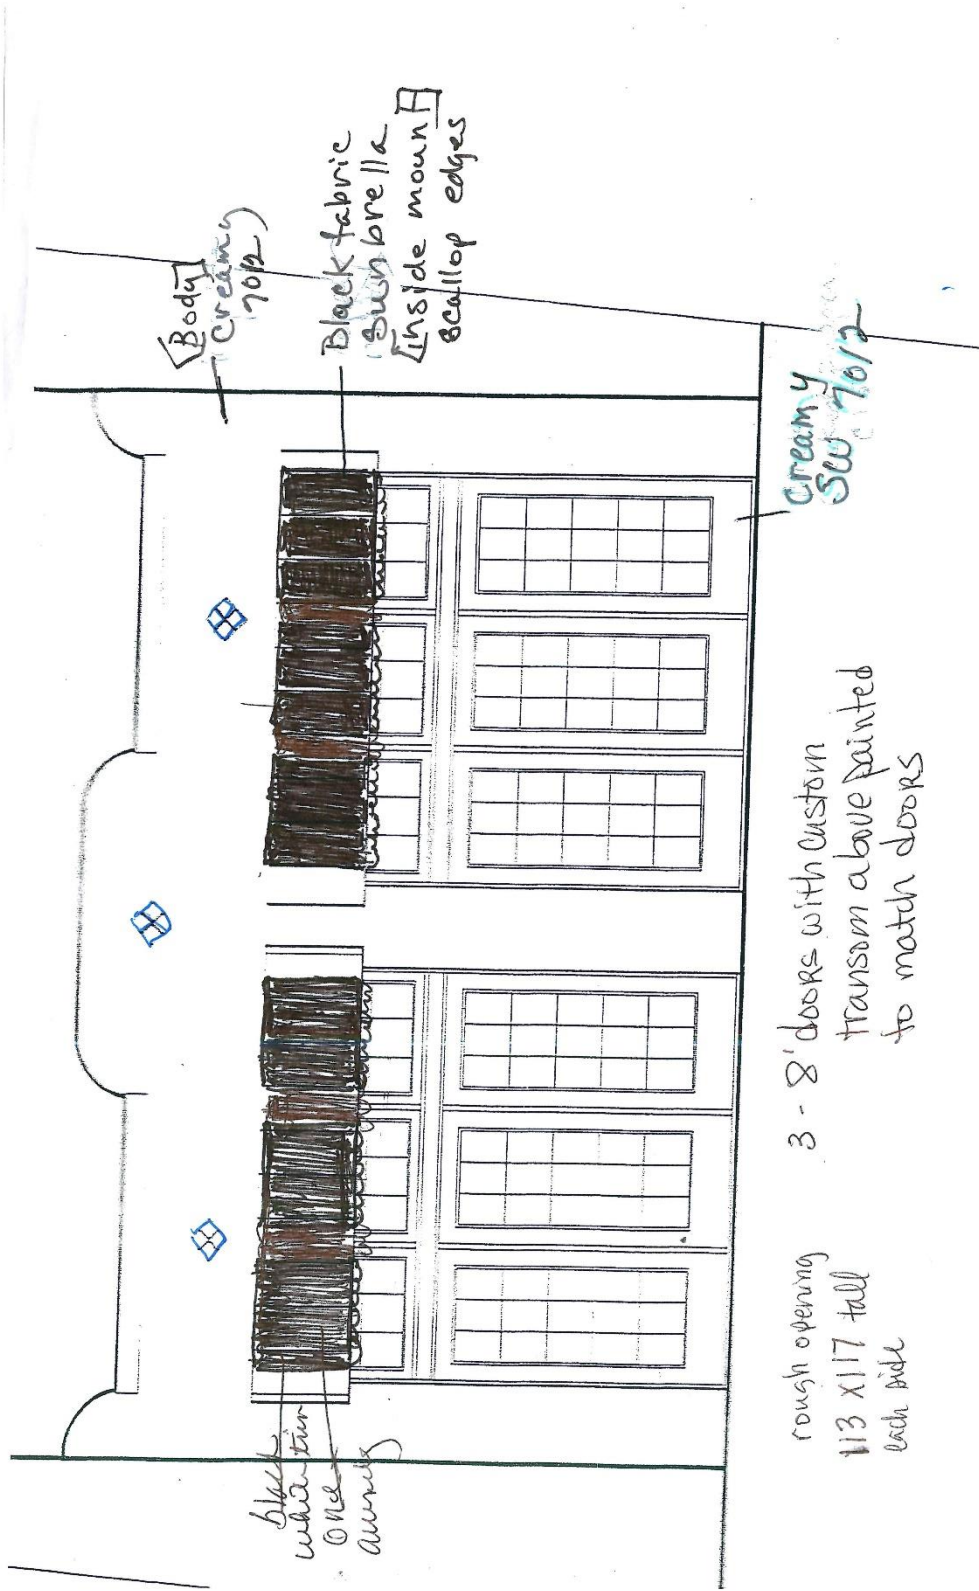 [Body]
Creamy
7012)
Black fabric
Sunbrella
[inside mount]
scallop edges
Creamy
SW 7012
3 - 8' doors with custom
transom above painted
to match doors
rough opening
113 x 117 tall
each side
black
one